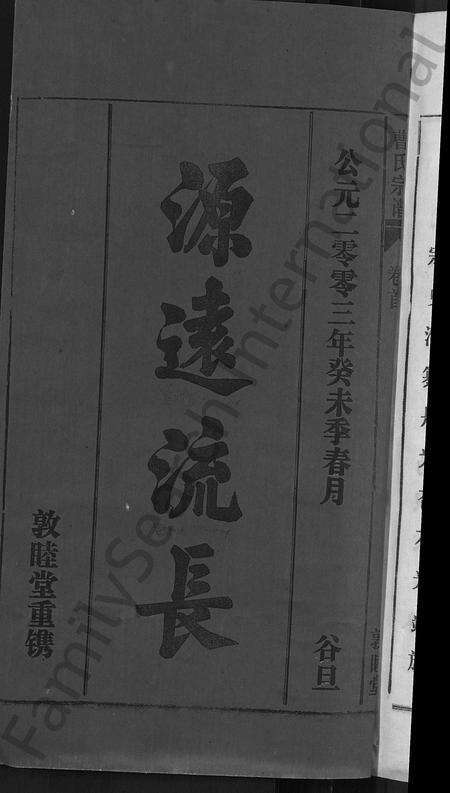 曹氏宗譜
卷首
敦睦堂
公元二零零三年癸未季春月 谷旦
源遠流長
敦睦堂重镌
FamilySearch International